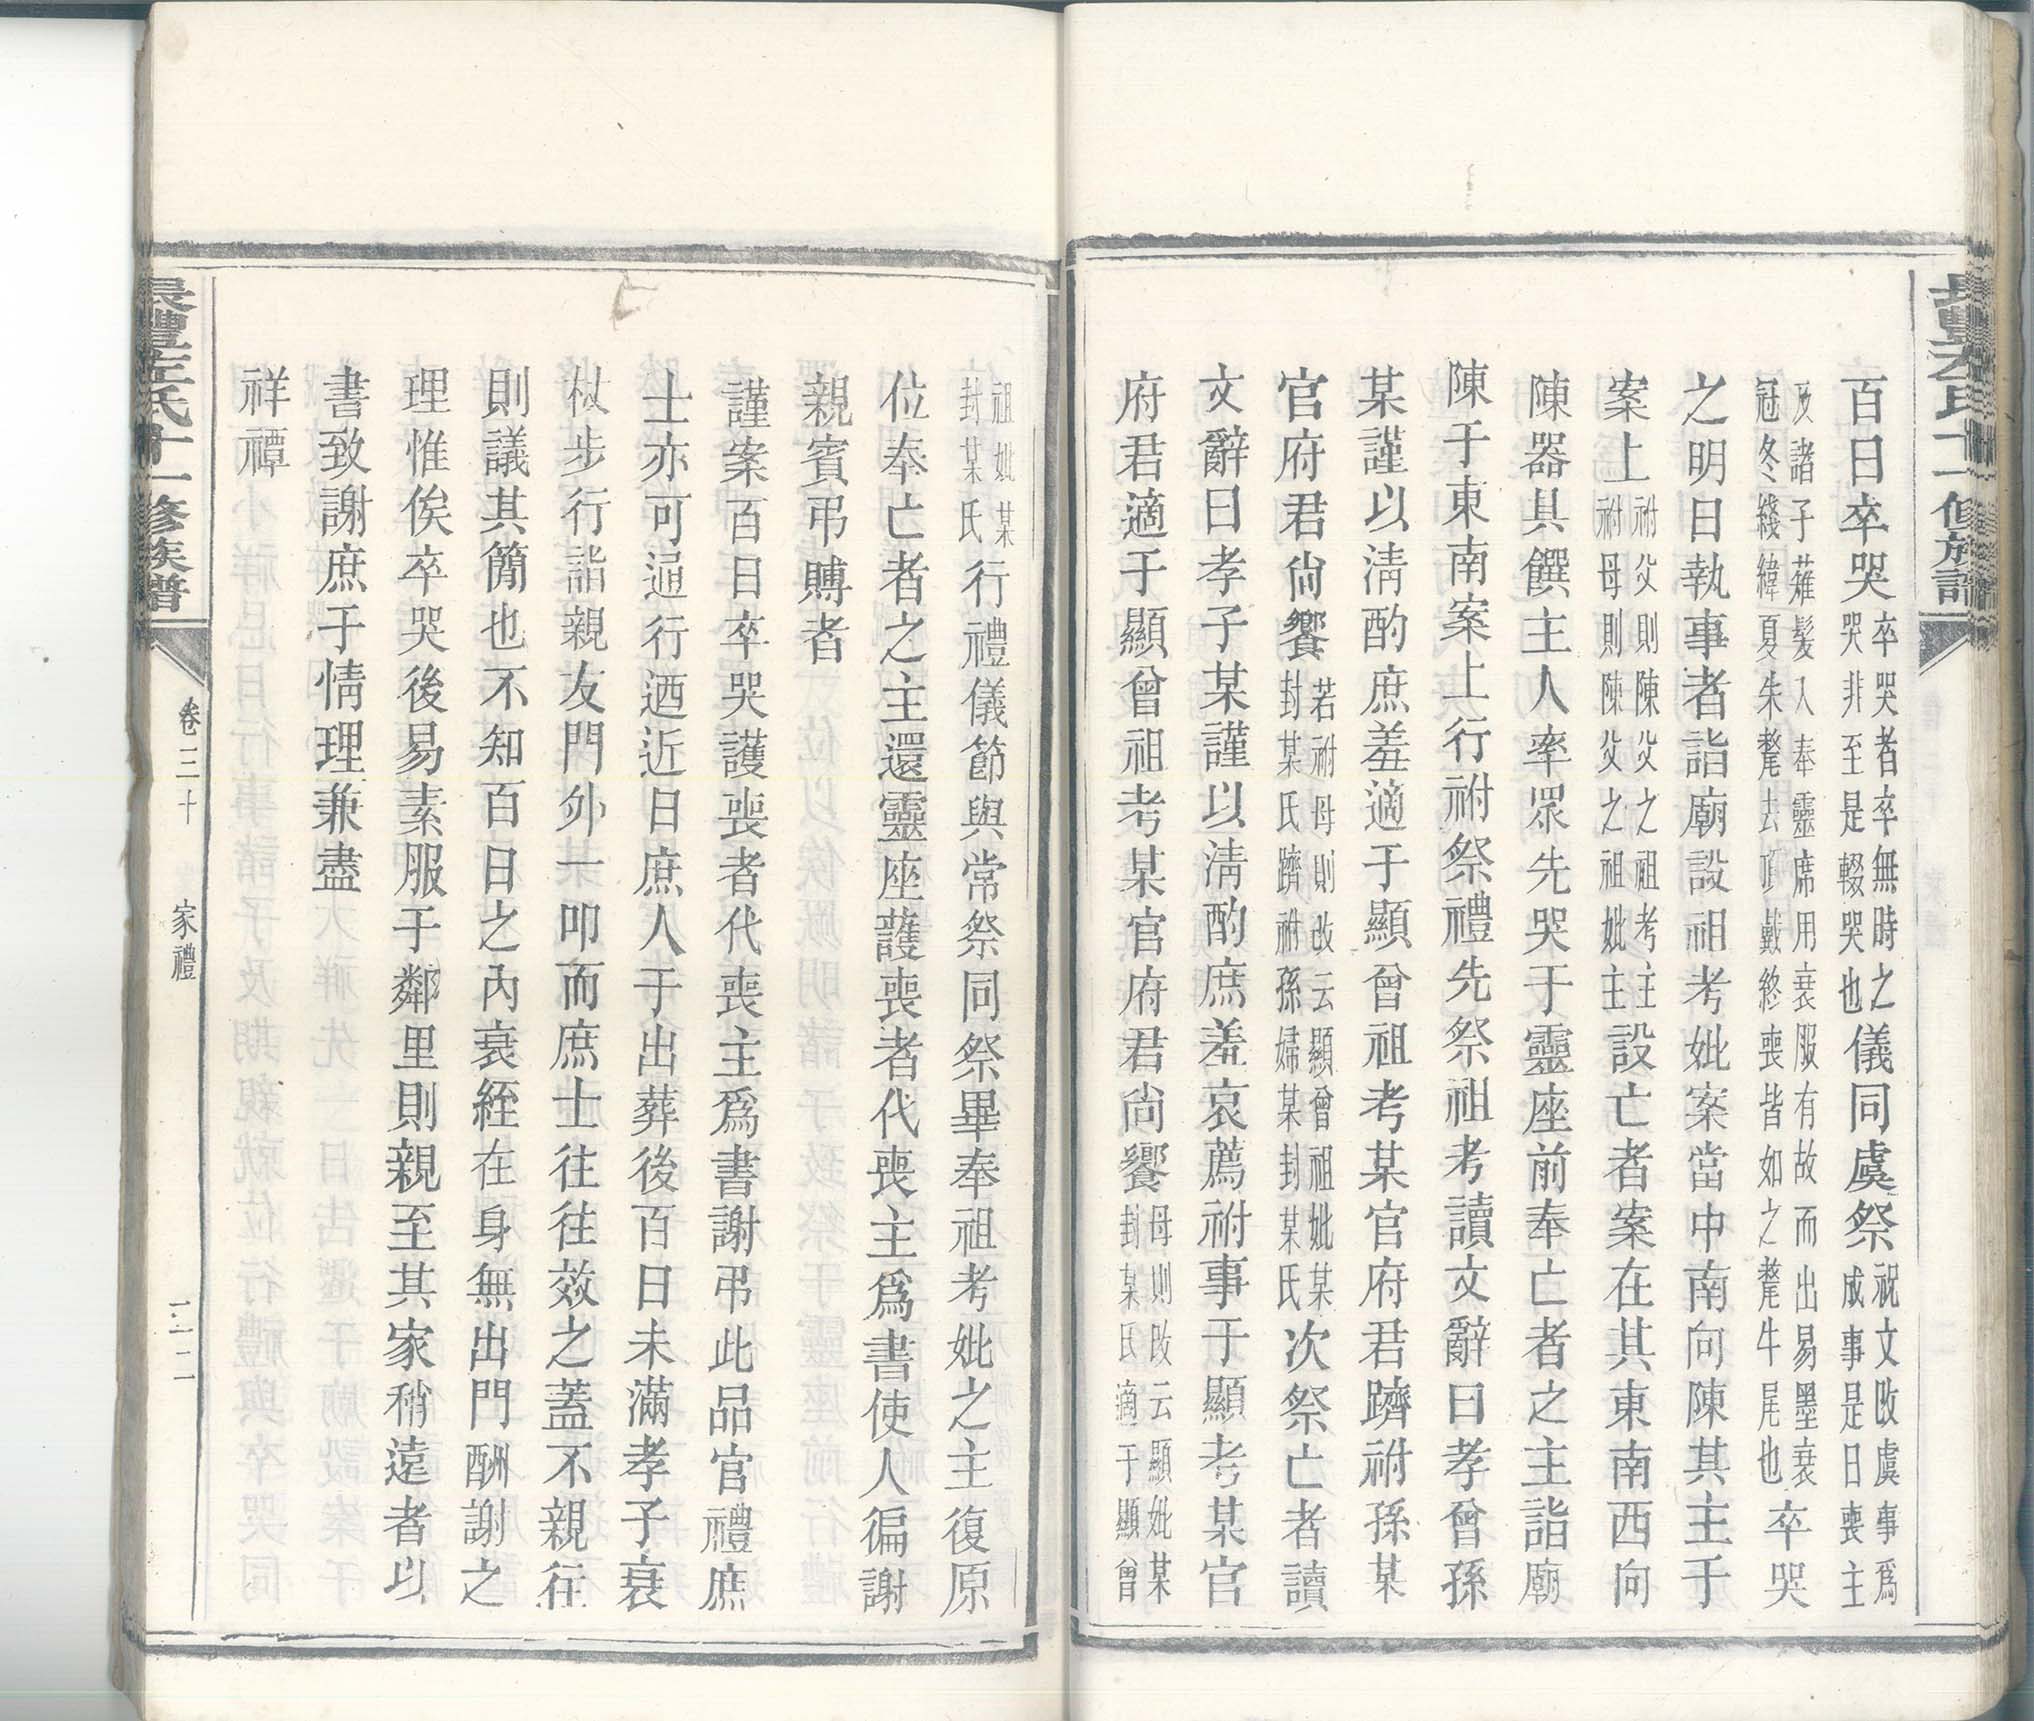 百日卒哭卒哭者卒無時之哭非至是輟哭也儀同虞祭祝文改虞事爲成事是日喪主
及諸子薙髮入奉靈席用衰服有故而出易墨衰冠冬綫緯夏朱氂去頂戴終喪皆如之氂牛尾也卒哭
之明日執事者詣廟設祖考妣案當中南向陳其主于
案上祔父則陳父之祖考主祔母則陳父之祖妣主設亡者案在其東南西向
陳器具饌主人率眾先哭于靈座前奉亡者之主詣廟
陳于東南案上行祔祭禮先祭祖考讀文辭曰孝曾孫
某謹以淸酌庶羞適于顯曾祖考某官府君躋祔孫某
官府君尙饗若祔母則改云顯曾祖妣某封某氏躋祔孫婦某封某氏次祭亡者讀
文辭曰孝子某謹以淸酌庶羞哀薦祔事于顯考某官
府君適于顯曾祖考某官府君尙饗母則改云顯妣某封某氏適于顯曾
祖妣某封某氏行禮儀節與常祭同祭畢奉祖考妣之主復原
位奉亡者之主還靈座護喪者代喪主爲書使人徧謝
親賓弔賻者
謹案百日卒哭護喪者代喪主爲書謝弔此品官禮庶
士亦可通行迺近日庶人于出葬後百日未滿孝子衰
杖步行詣親友門外一叩而庶士往往效之蓋不親往
則議其簡也不知百日之內衰絰在身無出門酬謝之
理惟俟卒哭後易素服于鄰里則親至其家稍遠者以
書致謝庶于情理兼盡
祥禫
長豐左氏十一修族譜
卷三十
家禮
二二